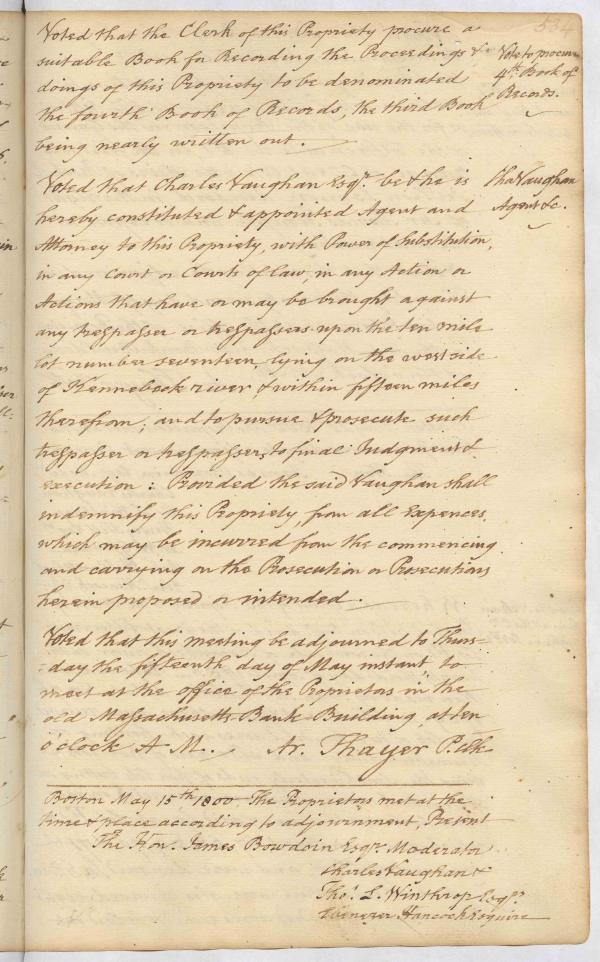 534
Voted that the Clerk of this Propriety procure a
suitable Book for Recording the Proceedings &
doings of this Propriety to be denominated
the fourth Book of Records, the third Book
being nearly written out.
Vote to procure
4th. Book of
Records.
Voted that Charles Vaughan Esqr. be & he is
hereby constituted & appointed Agent and
Attorney to this Propriety, with Power of Substitution,
in any Court or Courts of law, in any Action or
Actions that have or may be brought against
any trespasser or trespassers upon the ten mile
lot number seventeen, lying on the west side
of Kennebeck river & within fifteen miles
therefrom; and to pursue & prosecute such
trespasser or trespassers to final Judgment &
execution: Provided the said Vaughan shall
indemnify this Propriety, from all Expences,
which may be incurred from the commencing
and carrying on the Prosecution or Prosecutions
herein proposed or intended.
Cha Vaughan
Agent &c.
Voted that this meeting be adjourned to Thurs-
-day the fifteenth day of May instant, to
meet at the office of the Proprietors in the
old Massachusetts Bank Building, at ten
o'clock A M. Ar. Thayer P. Clk
Boston May 15th 1800. The Proprietors met at the
time & place according to adjournment, Present
The Hon. James Bowdoin Esqr. Moderator
Charles Vaughan &
Tho.s L. Winthrop Esqrs.
Ebenezer Hancock Esquire